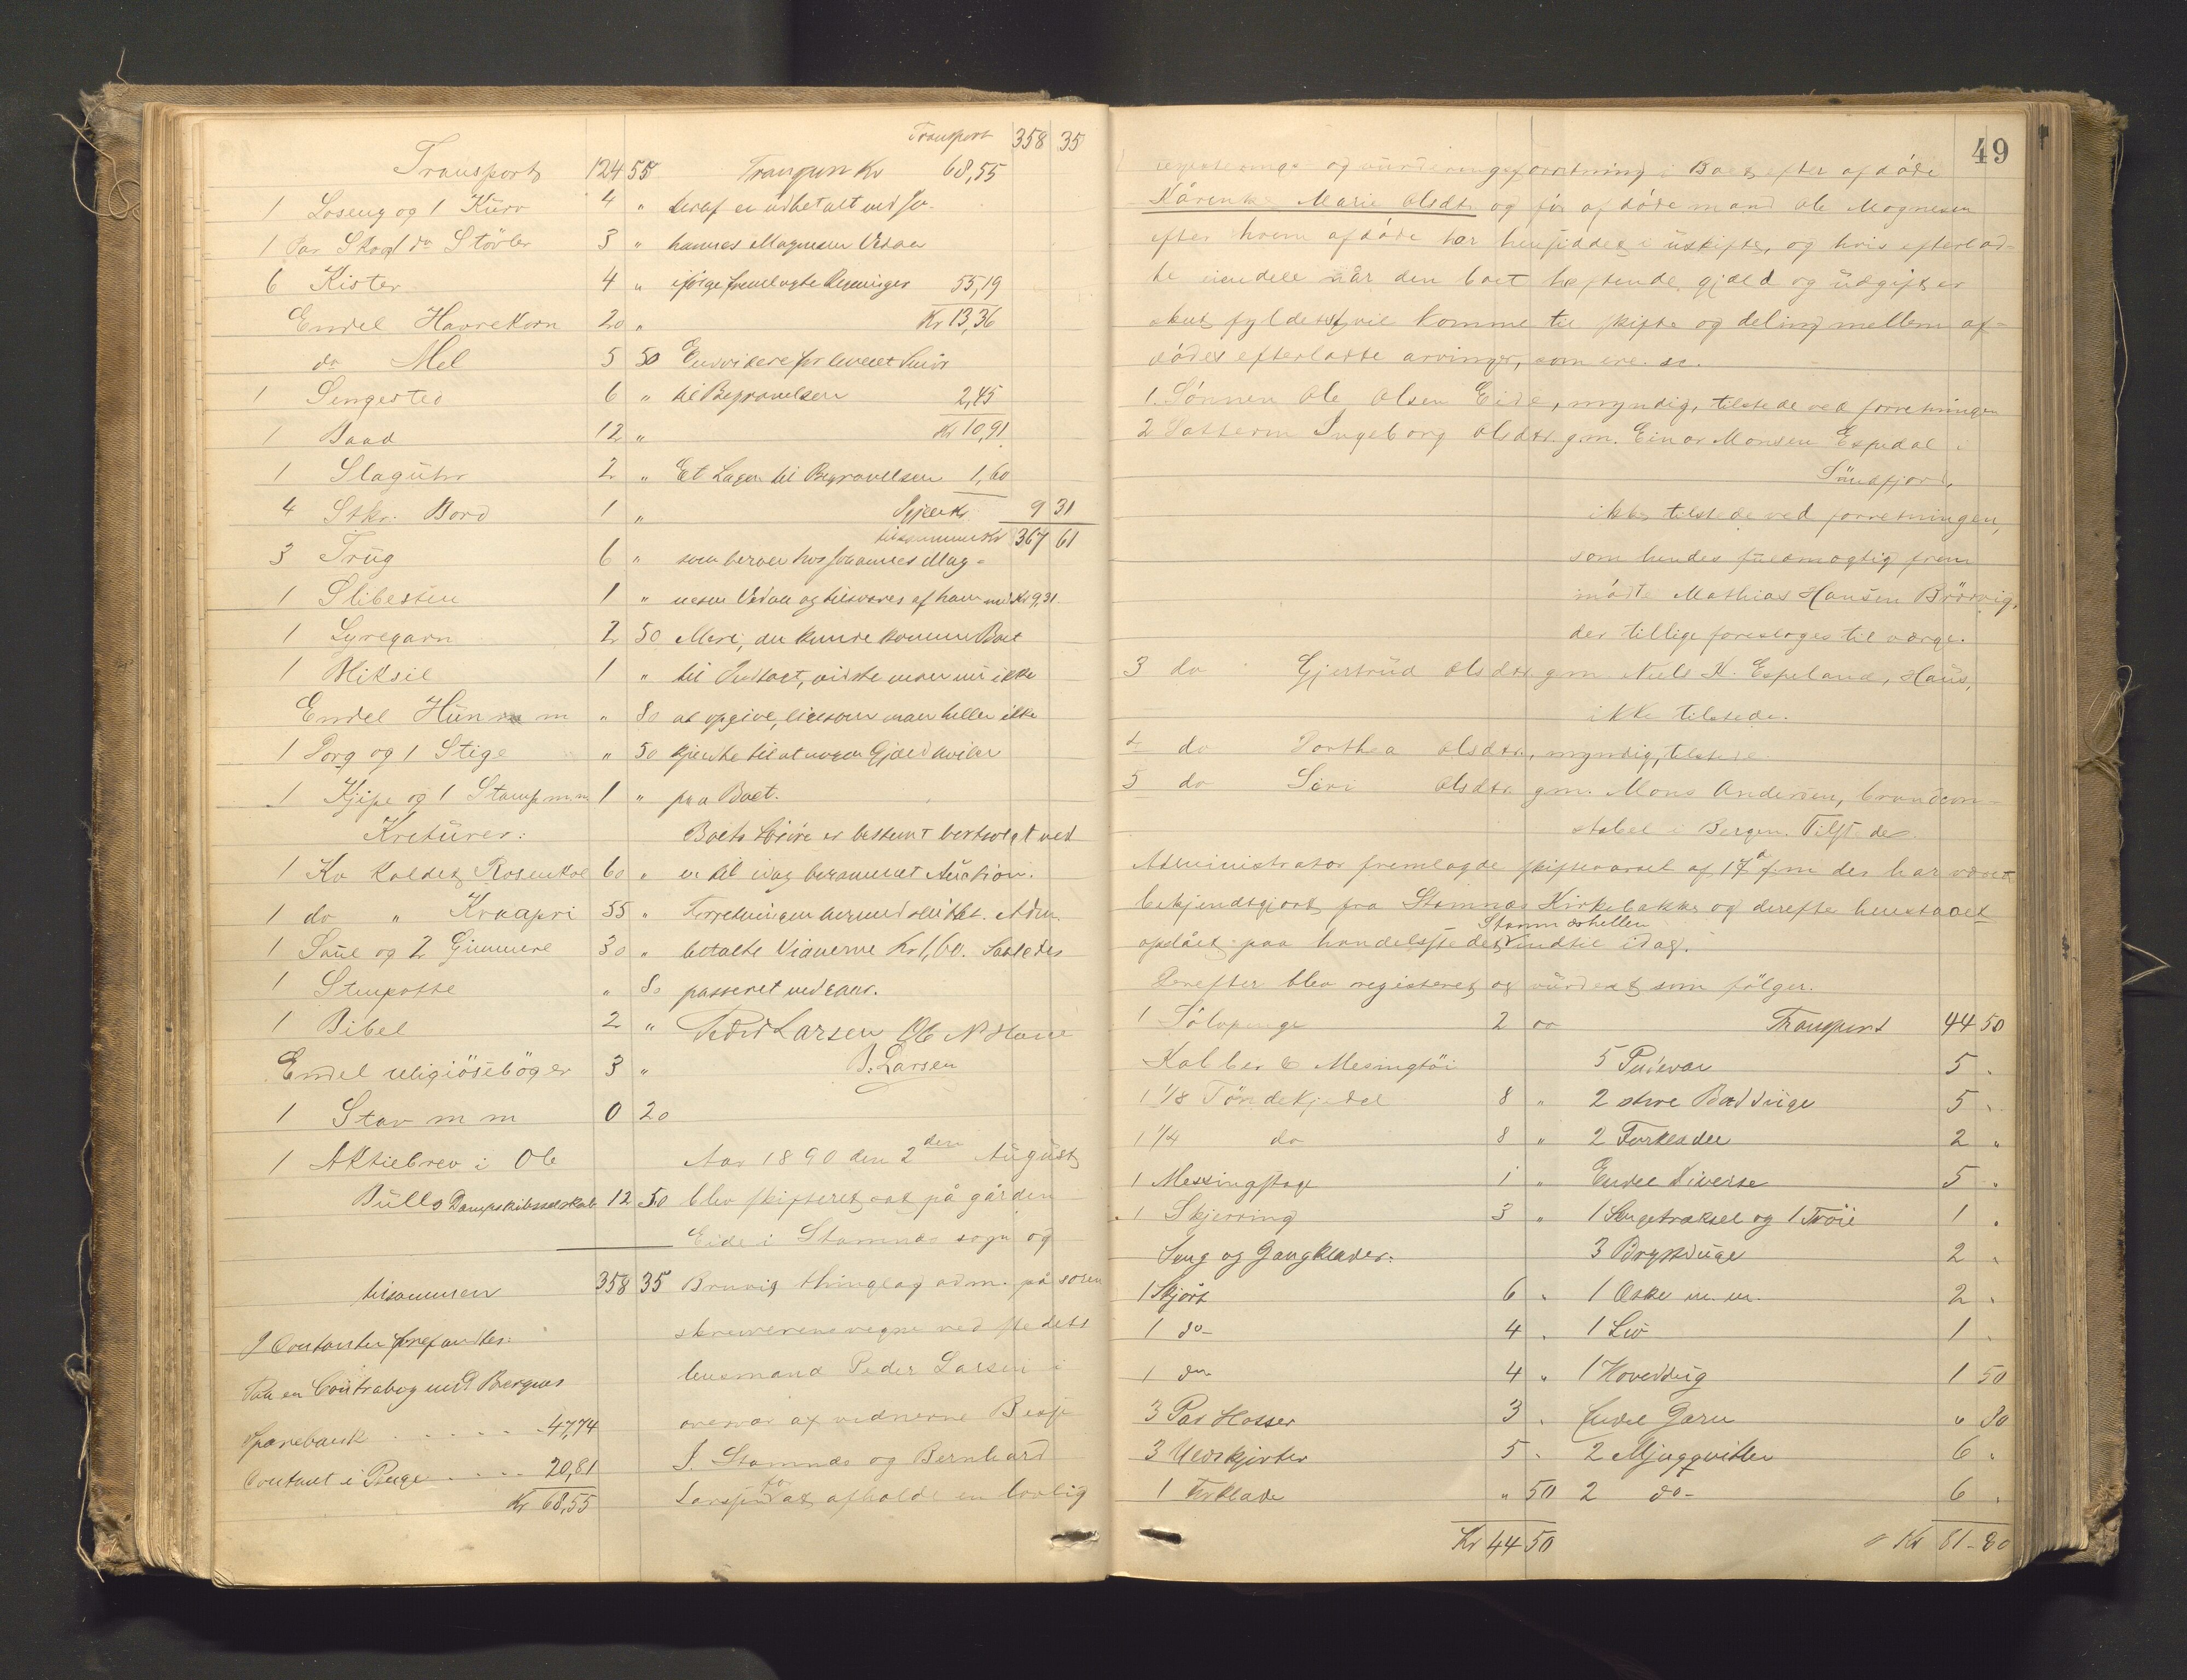 Transport 124 55
1 Loseng og 1 Kürv 4 "
1 Par Sko og 1 do Støvler 3 "
6 Kister 4 "
Endel Havrekorn 20 "
do Mel 5 50
1 Sengested 6 "
1 Baad 12 "
1 Slagühr 2 "
4 Stkr. Bord 1 "
3 Trüg 6 "
1 Slibesten 1 "
1 Lyregarn 2 50
1 Miksil 1 "
Endel Hün m m " 80
1 Torg og 1 Stige " 50
1 Kjipe og 1 Stamp m m 1 "
Kretürer:
1 Ko kaldet Rosenkol 60 "
1 do " Kraapri 55 "
1 Saüe og 2 Gimmere 30 "
1 Stenpotte " 80
1 Bibel 2 "
Endel religiösebøger 3 "
1 Stav m m 0 20
1 Aktiebrev i Ole
Bülls Dampskibsselskab 12 50
tilsammen 358 35
I Contanter forefandtes:
Paa en Contrabog med Bergens
Sparebank . . . . . 47,74
Contant i Penge . . . . 20,81
Kr 68,55
Transport 358 35
Transport Kr 68,55
heraf er udbetalt ved Jo-
hannes Magnesen Vedaa
ifølge fremlagte Regninger 55,19
Kr 13,36
Endvidere for leveret Smør
til Begravelsen 2,45
Kr 10,91
Et Lagen til Begravelsen 1,60
Igjen Kr 9 31
tilsammen Kr 367 61
som beroer hos Johannes Mag-
nesen Vedaa og tilsvares af ham med Kr 9,31.
Mere, der kunde komme Boet
til Indtægt, vidste man nu ikke
at opgive, ligesom man heller ikke
kjendte til at nogen Gjæld hviler
paa Boet.
Boets Løsøre er bestemt bortsolgt ved
en til idag berammet Auction.
Forretningen hermed sluttet. Adm.
betalte Vidnerne Kr 1,60. Saaledes
passeret vedgaaes.
Peder Larsen Ole N Houe
B. Larsen
Aar 1890 den 2den August
blev skifteret sat på gården
Eide i Stamnes sogn og
Bruvig thinglag adm. på soren
skriverens vegne ved stedets
lensmand Peder Larsen i
overvær af vidnerne
J. Stamnæs og Bernhard
Larsen for at afholde en lovlig
49
registrerings- og vürderingsforretning i Boet efter afdøde
Kårenke Marie Olsdtr og før afdøde mand Ole Magnesen
efter hvem afdøde har hensiddet i üskifte, og hvis efterlad-
te eiendele når den boet heftende gjæld og üdgifter
vil komme til skifte og deling mellem af-
dødes efterladte arvinger, som ere. sc.
1. Sønnen Ole Olsen Eide, myndig, tilstede ved forretningen
2 Datteren Ingeborg Olsdtr. gm. Einar Monsen Espedal i
Søndfjord,
ikke tilstede ved forretningen,
som hendes füldmægtig frem
mødte Mathias Hansen Brørvig,
der tillige foresloges til værge.
3 do Gjertrüd Olsdtr gm. Niels K. Espeland, Haüs,
ikke tilstede.
4 do Dorthea Olsdtr, myndig, tilstede.
5 do Siri Olsdtr gm. Mons Andersen, brandcon-
stabel i Bergen. Tilstede
Administrator fremlagde skiftevarsel af 17d f.m der har været
bekjendtgjort fra Stamnæs Kirkebakke og derefter henstaaet
opslået paa handelsstedet Stamnæshellen indtil idag.
Derefter blev registreret og vürderet som følger.
1 Sølvpenge 2 00
Kobber & Mesingtøi
1 1/8 Tøndekjedel 8 "
1 1/4 do 8 "
1 Messingstage 1 "
1 Skjerring 3 "
Seng og Gangklæder:
1 Skjørt 6 "
1 do 4 "
1 do 4 "
3 Par Hosser 3 "
3 Uldskjorter 5 "
1 Forklæde " 50
Kr 44 50
Transport 44 50
5 Pudevar 5 "
2 store Bordduge 5 "
2 Forklæder 2 "
Endel Diverse 5 "
1 Sengetræksel og 1 Trøie 1 "
3 Brystduge 2 "
1 Æske m. m. 2 "
1 Liv 1 "
1 Hoveddug 1 50
Endel Garn " 80
2 Mjuggvitler 6 "
2 do 6 "
Kr 81 - 80